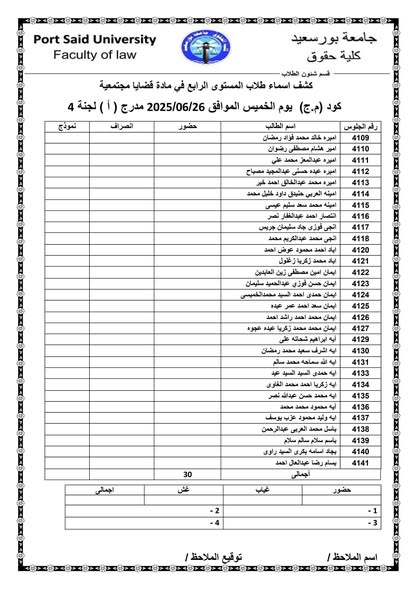 جامعة بورسعيد
Port Said University
كلية حقوق
Faculty of law
قسم شئون الطلاب
كشف اسماء طلاب المستوى الرابع في مادة قضايا مجتمعية
كود (م.ج) يوم الخميس الموافق 2025/06/26 مدرج ( أ ) لجنة 4
رقم الجلوس اسم الطالب حضور انصراف نموذج
4109 اميره خالد محمد فؤاد رمضان
4110 اميره هشام مصطفى رضوان
4111 اميره عبدالمعز محمد علي
4112 اميره عبده حسنى عبدالمجيد مصباح
4113 اميره محمد عبدالخالق احمد خير
4114 امينه العربي حنيدق داود خليل محمد
4115 امينه محمد سعد سليم عيسى
4116 انتصار احمد عبدالغفار نصر
4117 انجى فوزى جاد سليمان جريس
4118 انجى محمد عبدالكريم محمد
4120 اياد احمد محمود عوض احمد
4121 اياد محمد زكريا زغلول
4122 ايمان امين مصطفى زين العابدين
4123 ايمان حسن فوزي عبدالحميد سليمان
4124 ايمان حمدى احمد السيد محمدالخميسى
4125 ايمان سعد احمد عمر عبده
4126 ايمان محمد احمد راشد احمد
4127 ايمان محمد محمد زكريا عبده عجوه
4129 ايه ابراهيم شحاته على
4130 ايه اشرف سعيد محمد رمضان
4131 ايه الله سماحه محمد سالم
4133 ايه حمدى السيد السيد عبد
4134 ايه زكريا احمد محمد الغاوى
4135 ايه محمد حسن عبدالله نصر
4136 أيه محمود محمد محمد
4137 ايه وليد محمود عزب يوسف
4138 باسل محمد العربى عبدالرحمن
4139 باسم سلام سالم سلام
4140 بجاد اسامه بكرى السيد راوى
4141 بسام رضا عبدالعال احمد
أجمالى 30
حضور غياب غش اجمالى
1 - 2 -
3 - 4 -
اسم الملاحظ / توقيع الملاحظ /